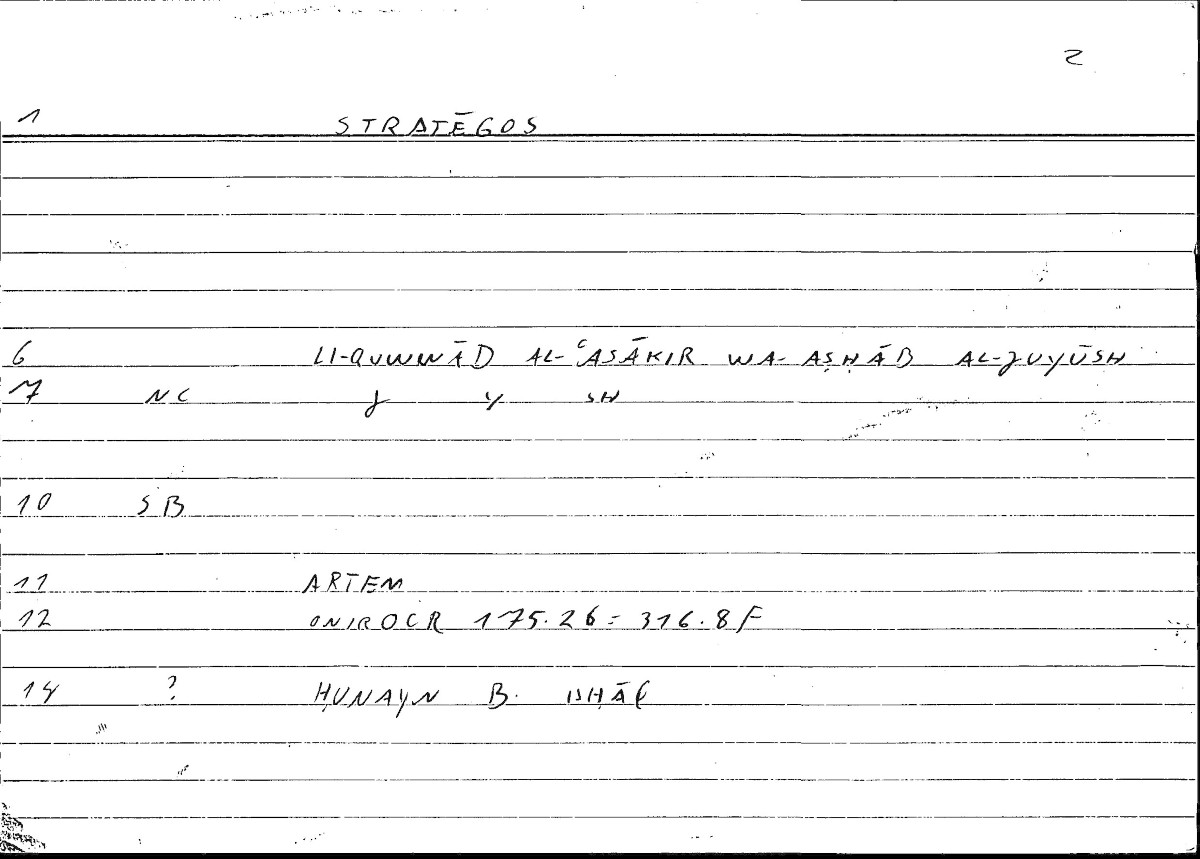 2
1 STRATĒGOS
6 LI-QUWWĀD AL-ʿASĀKIR WA-AṢḤĀB AL-JUYŪSH
7 NC J Y SH
10 SB
11 ARTEM
12 ONIROCR 175.26 = 316.8F
14 ? ḤUNAYN B. ISḤĀQ